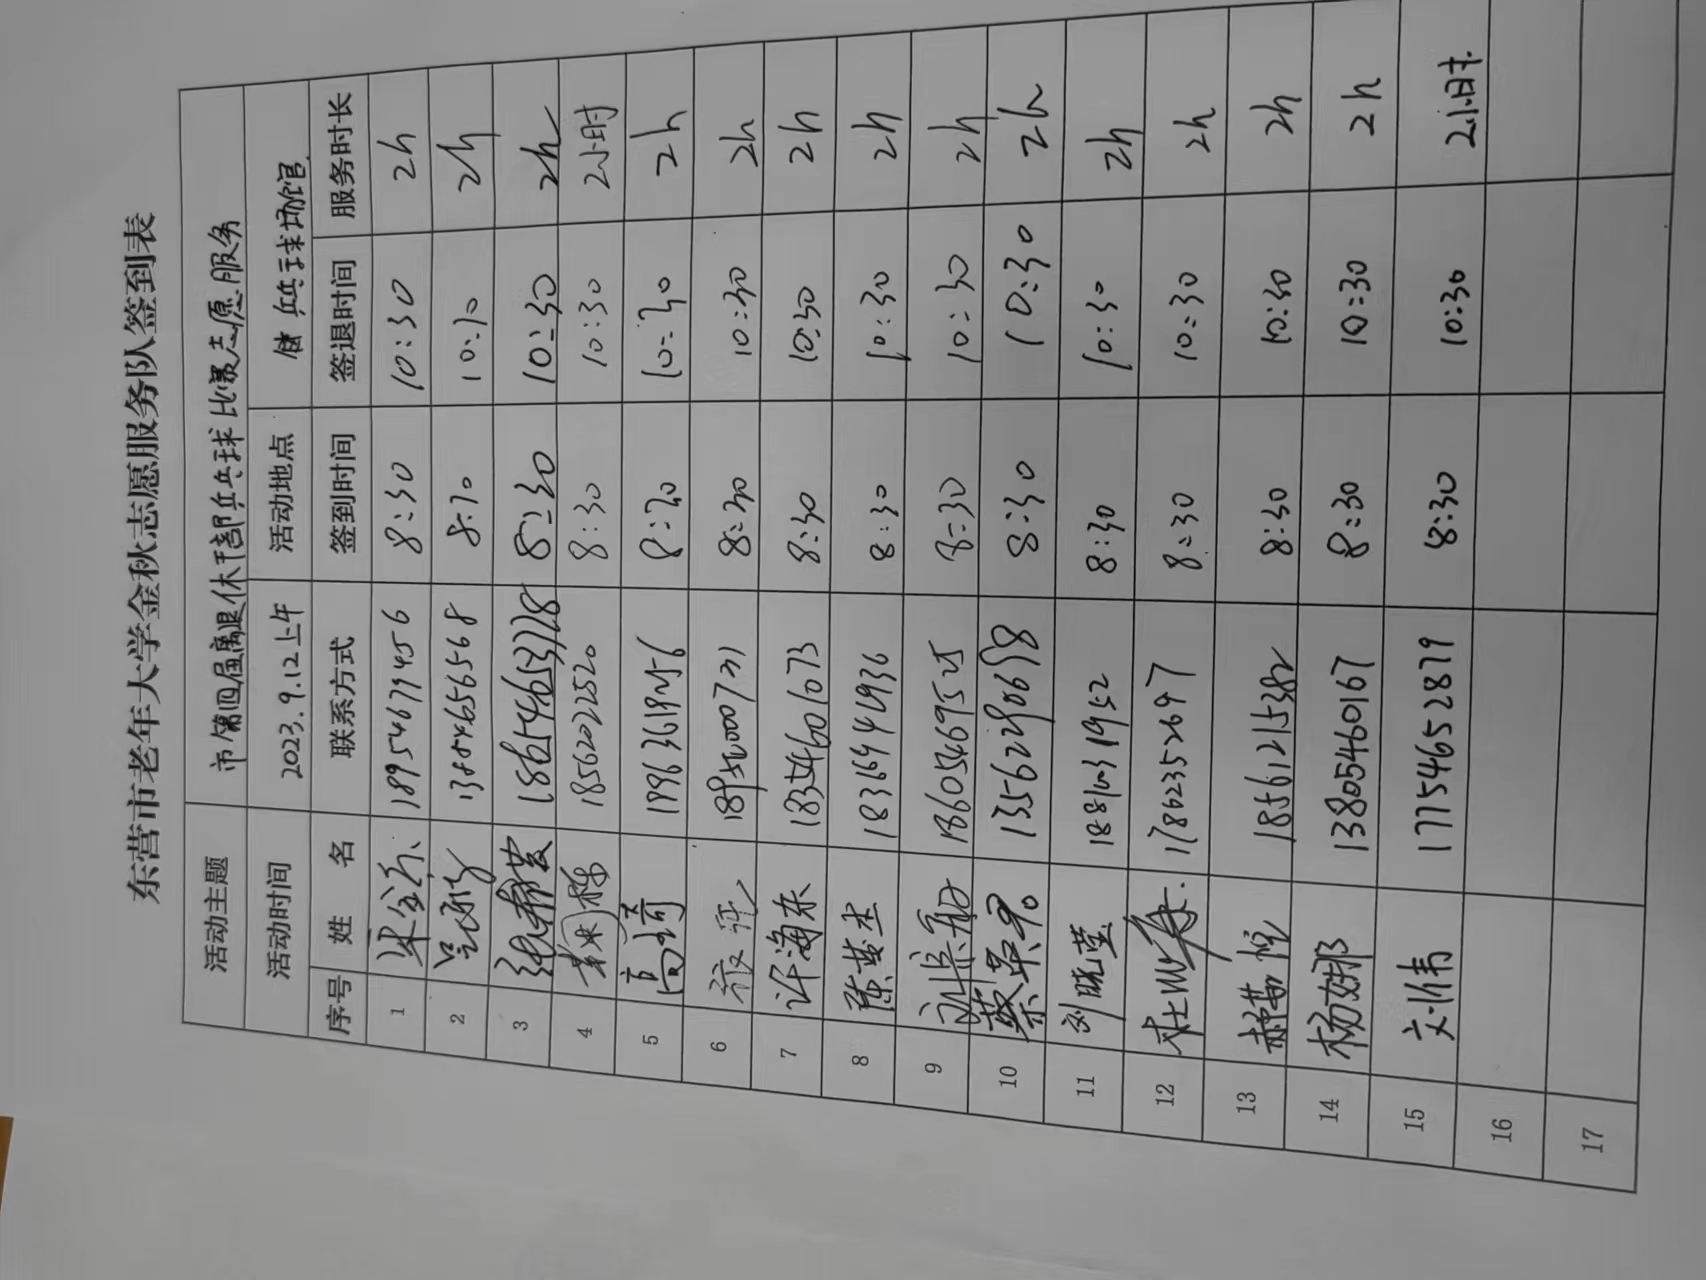 东营市老年大学金秋志愿服务队签到表
活动主题 市第四届离退休干部乒乓球比赛志愿服务
活动时间 2023.9.12上午 活动地点 乒乓球场馆
序号 姓 名 联系方式 签到时间 签退时间 服务时长
1 18954679456 8:30 10:30 2h
2 13854656568 8:30 10:30 2h
3 18654653728 8:30 10:30 2h
4 18562022520 8:30 10:30 2小时
5 高琦 8:30 10:30 2h
6 8:30 10:30 2h
7 许海东 18354601073 8:30 10:30 2h
8 陈楚杰 18364441936 8:30 10:30 2h
9 18605469525 8:30 10:30 2h
10 蔡英早 13562290698 8:30 10:30 2h
11 刘晓莹 8:30 10:30 2h
12 17862352697 8:30 10:30 2h
13 18561215382 8:30 10:30 2h
14 杨娜 13805460167 8:30 10:30 2h
15 刘伟 17754652879 8:30 10:30 2小时
16
17